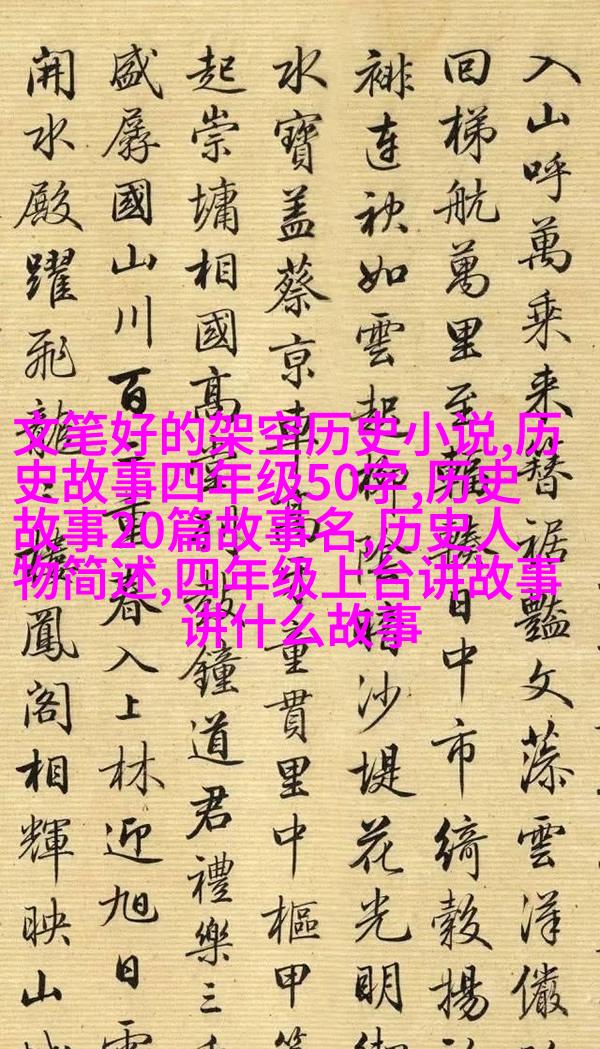 入山呼萬乘来簪裾豔文藻雲洋儼
回梯航萬里至輻輳日中市綺縠揚
連袂如雲起柳陰踏沙堤花光明
水寶盖蔡京車童貫里中樞甲第
起崇墉相國高臺敲鐘道君禮樂三
盛孱國山川百二重春入上林迎旭日雲
開水殿躍飛龍鳳閣相輝映山城
文笔好的架空历史小说,历
史故事四年级50字,历史
故事20篇故事名,历史人
物简述,四年级上台讲故事
讲什么故事